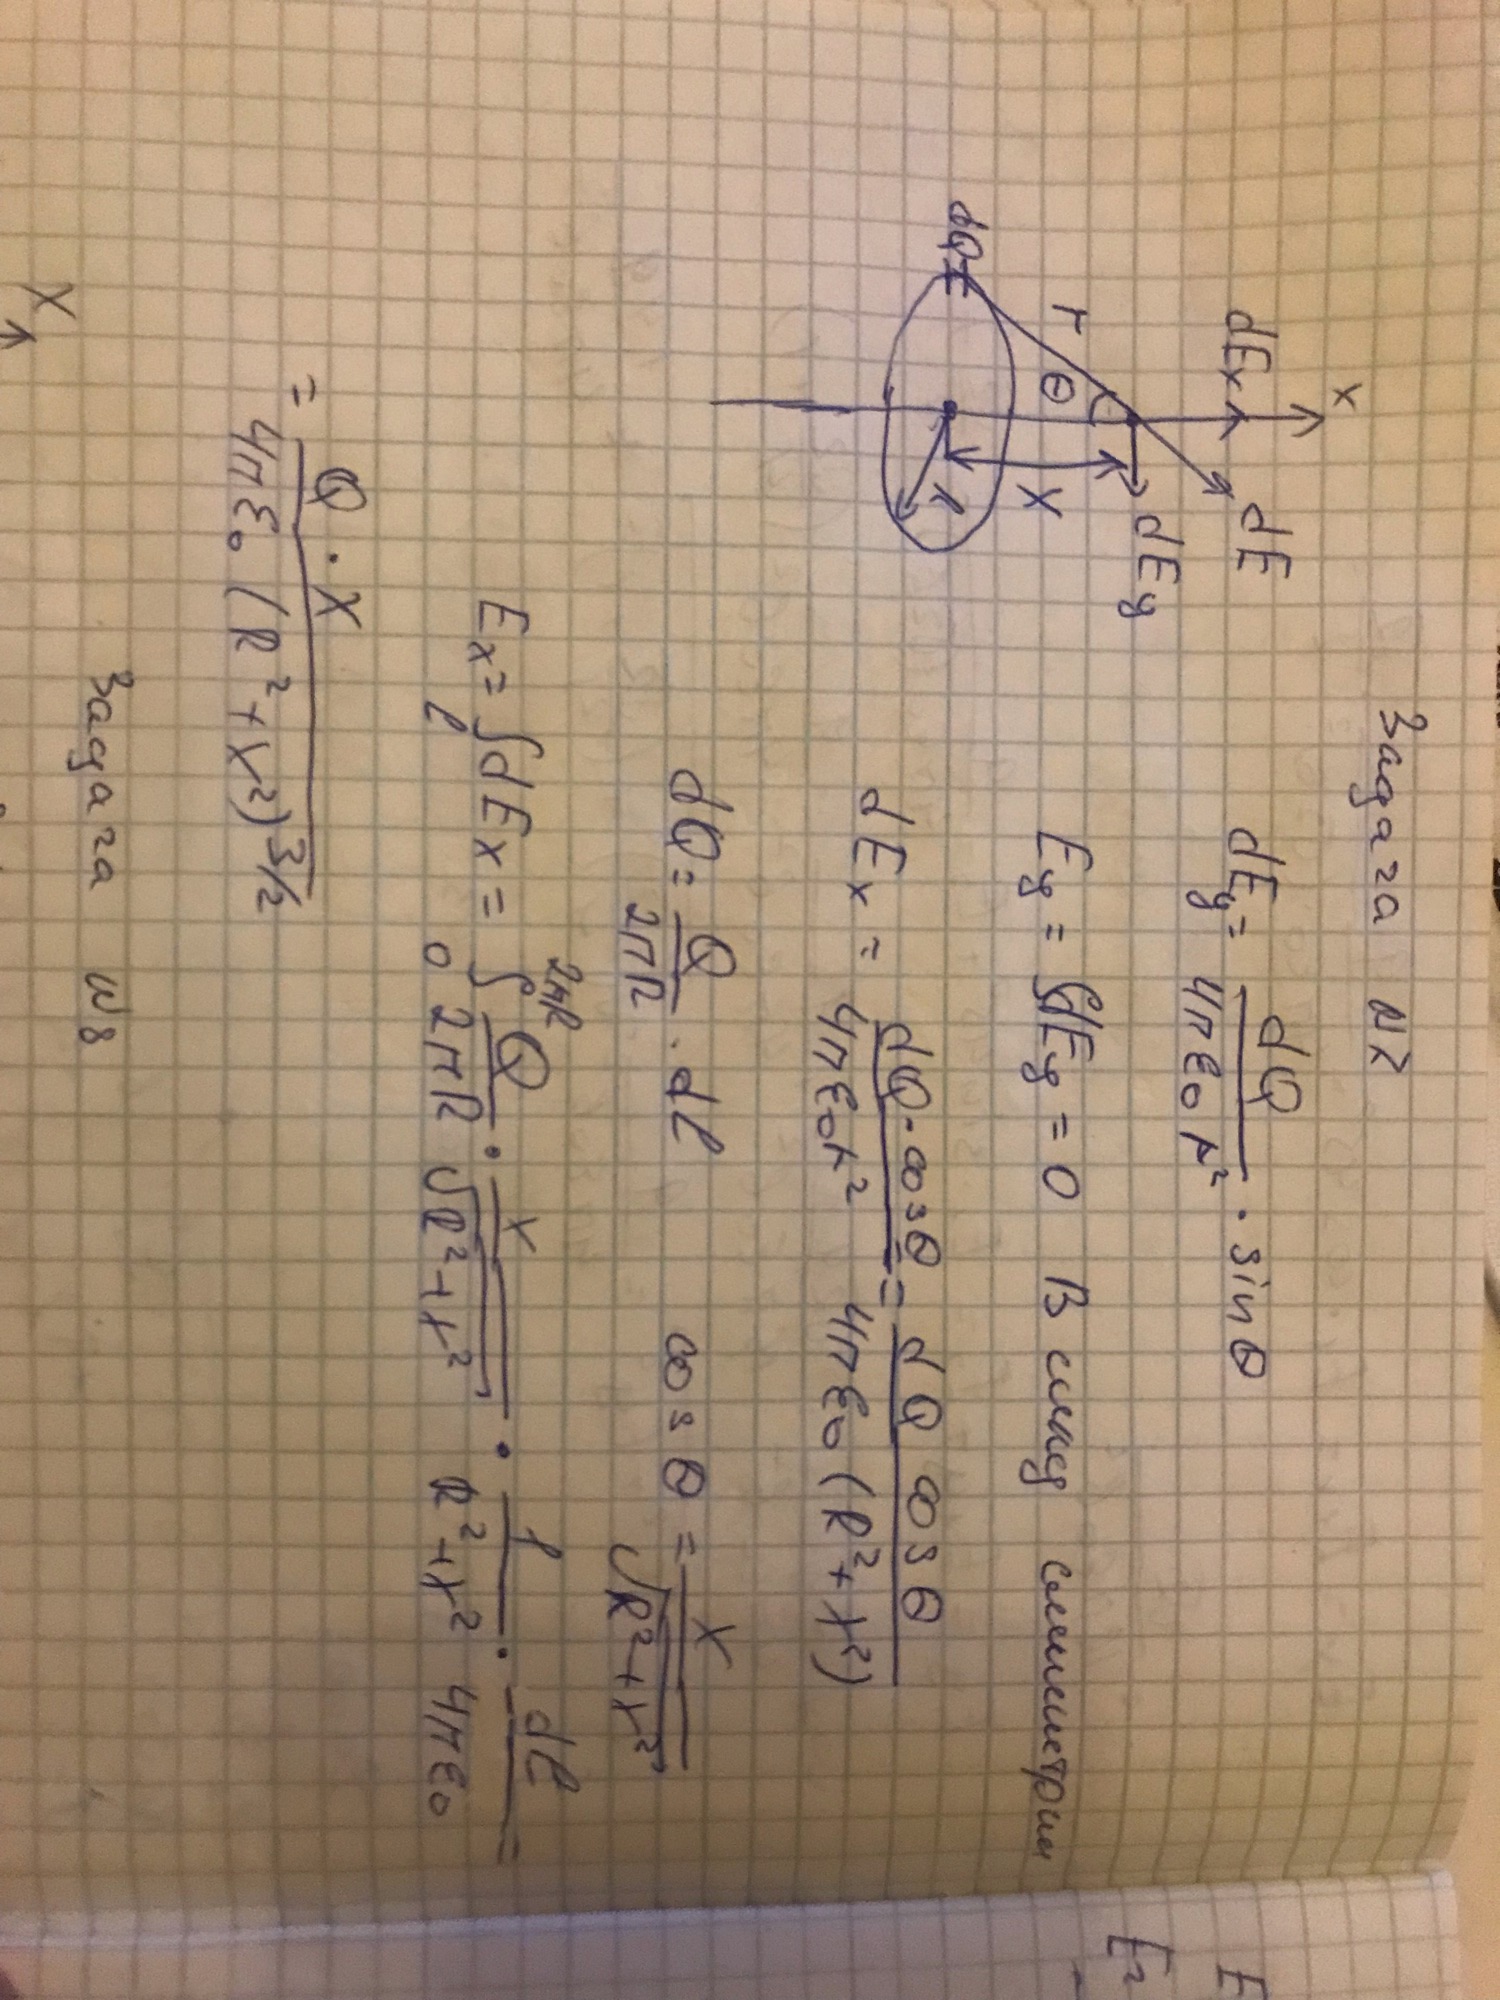 Задача N7
x
dEx
dE
dEy
r
θ
x
dQ
R
dEy = dQ / 4πε₀r² · sinθ
Ey = ∫dEy = 0 В силу симметрии
dEx = dQ·cosθ / 4πε₀r² = dQ cosθ / 4πε₀(R²+x²)
dQ = Q / 2πR · dl cosθ = x / √(R²+x²)
Ex = ∫_l dEx = ∫₀^2πR Q / 2πR · x / √(R²+x²) · 1 / R²+x² · dl / 4πε₀ =
= Q · x / 4πε₀(R²+x²)^3/2
Задача N8
X
E
E=